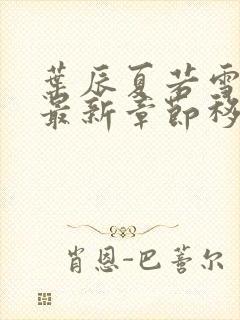 葉辰夏若雪
最新章節移
肖恩-巴蒈尔